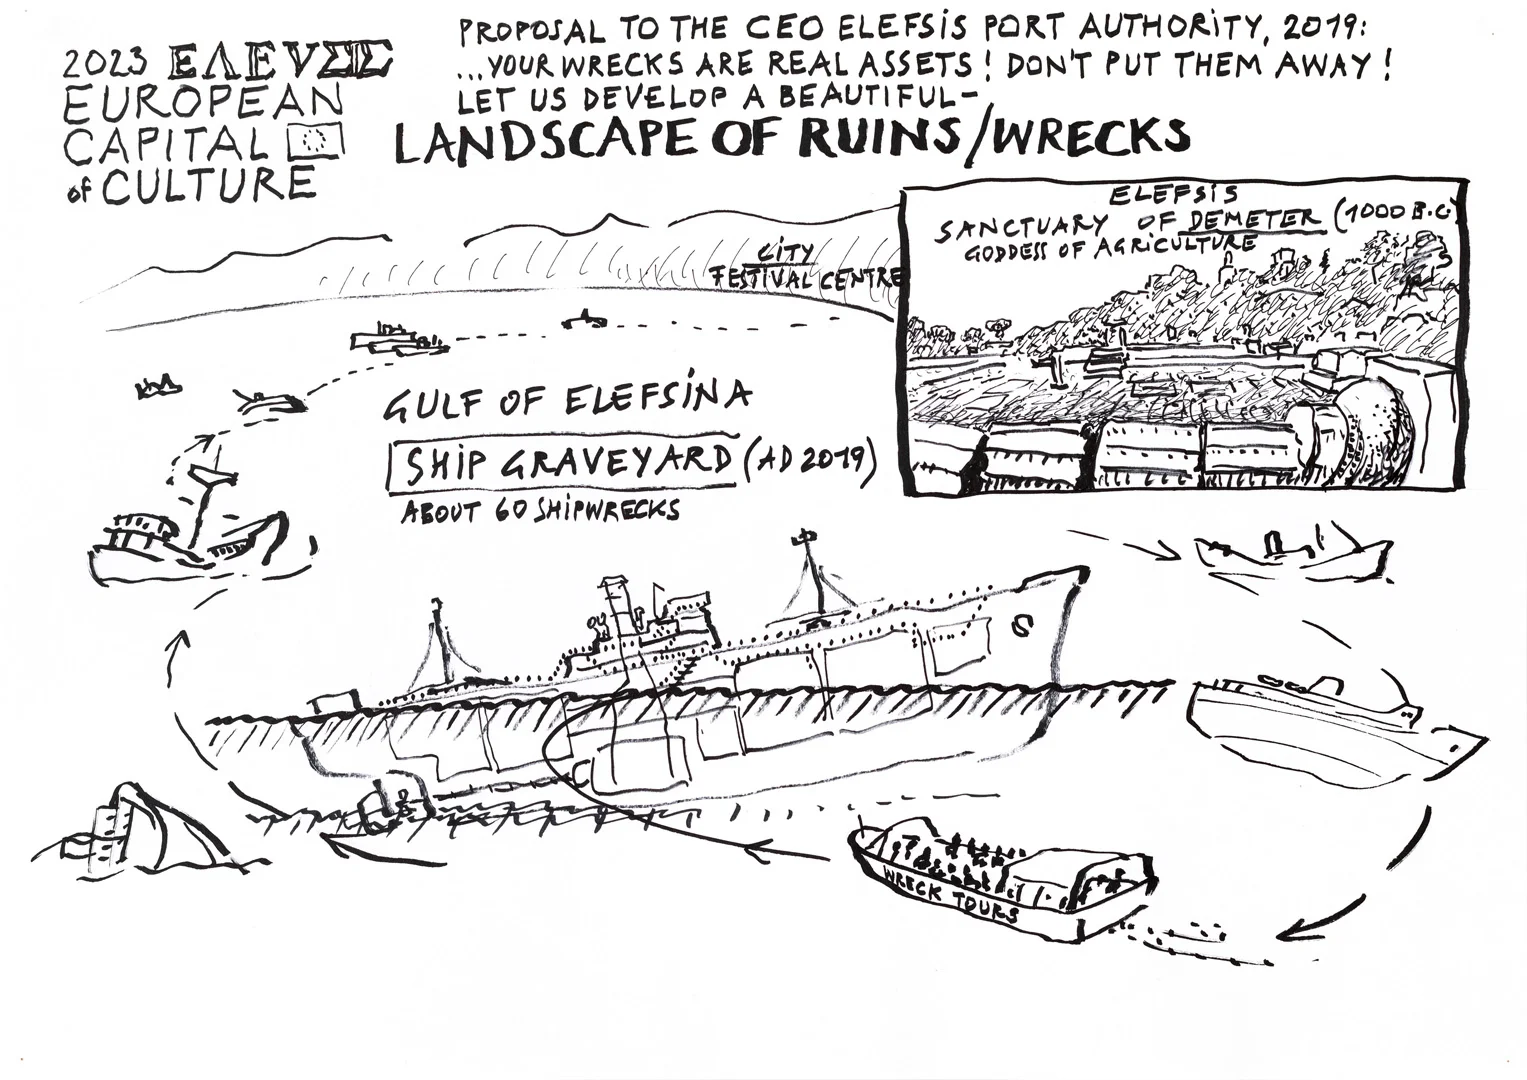 2023 ΕΛΕΥΣΙΣ
EUROPEAN
CAPITAL
of CULTURE
PROPOSAL TO THE CEO ELEFSiS PORT AUTHORiTY, 2019:
...YOUR WRECKS ARE REAL ASSETS! DON'T PUT THEM AWAY!
LET US DEVELOP A BEAUTIFUL-
LANDSCAPE OF RUINS/WRECKS
ELEFSiS
SANCTUARY OF DEMETER (1000 B.C)
GODDESS OF AGRiCULTURE
CiTY
FESTIVAL CENTRE
GULF OF ELEFSiNA
SHiP GRAVEYARD (AD 2019)
ABOUT 60 SHiPWRECKS
S
WRECK TOURS